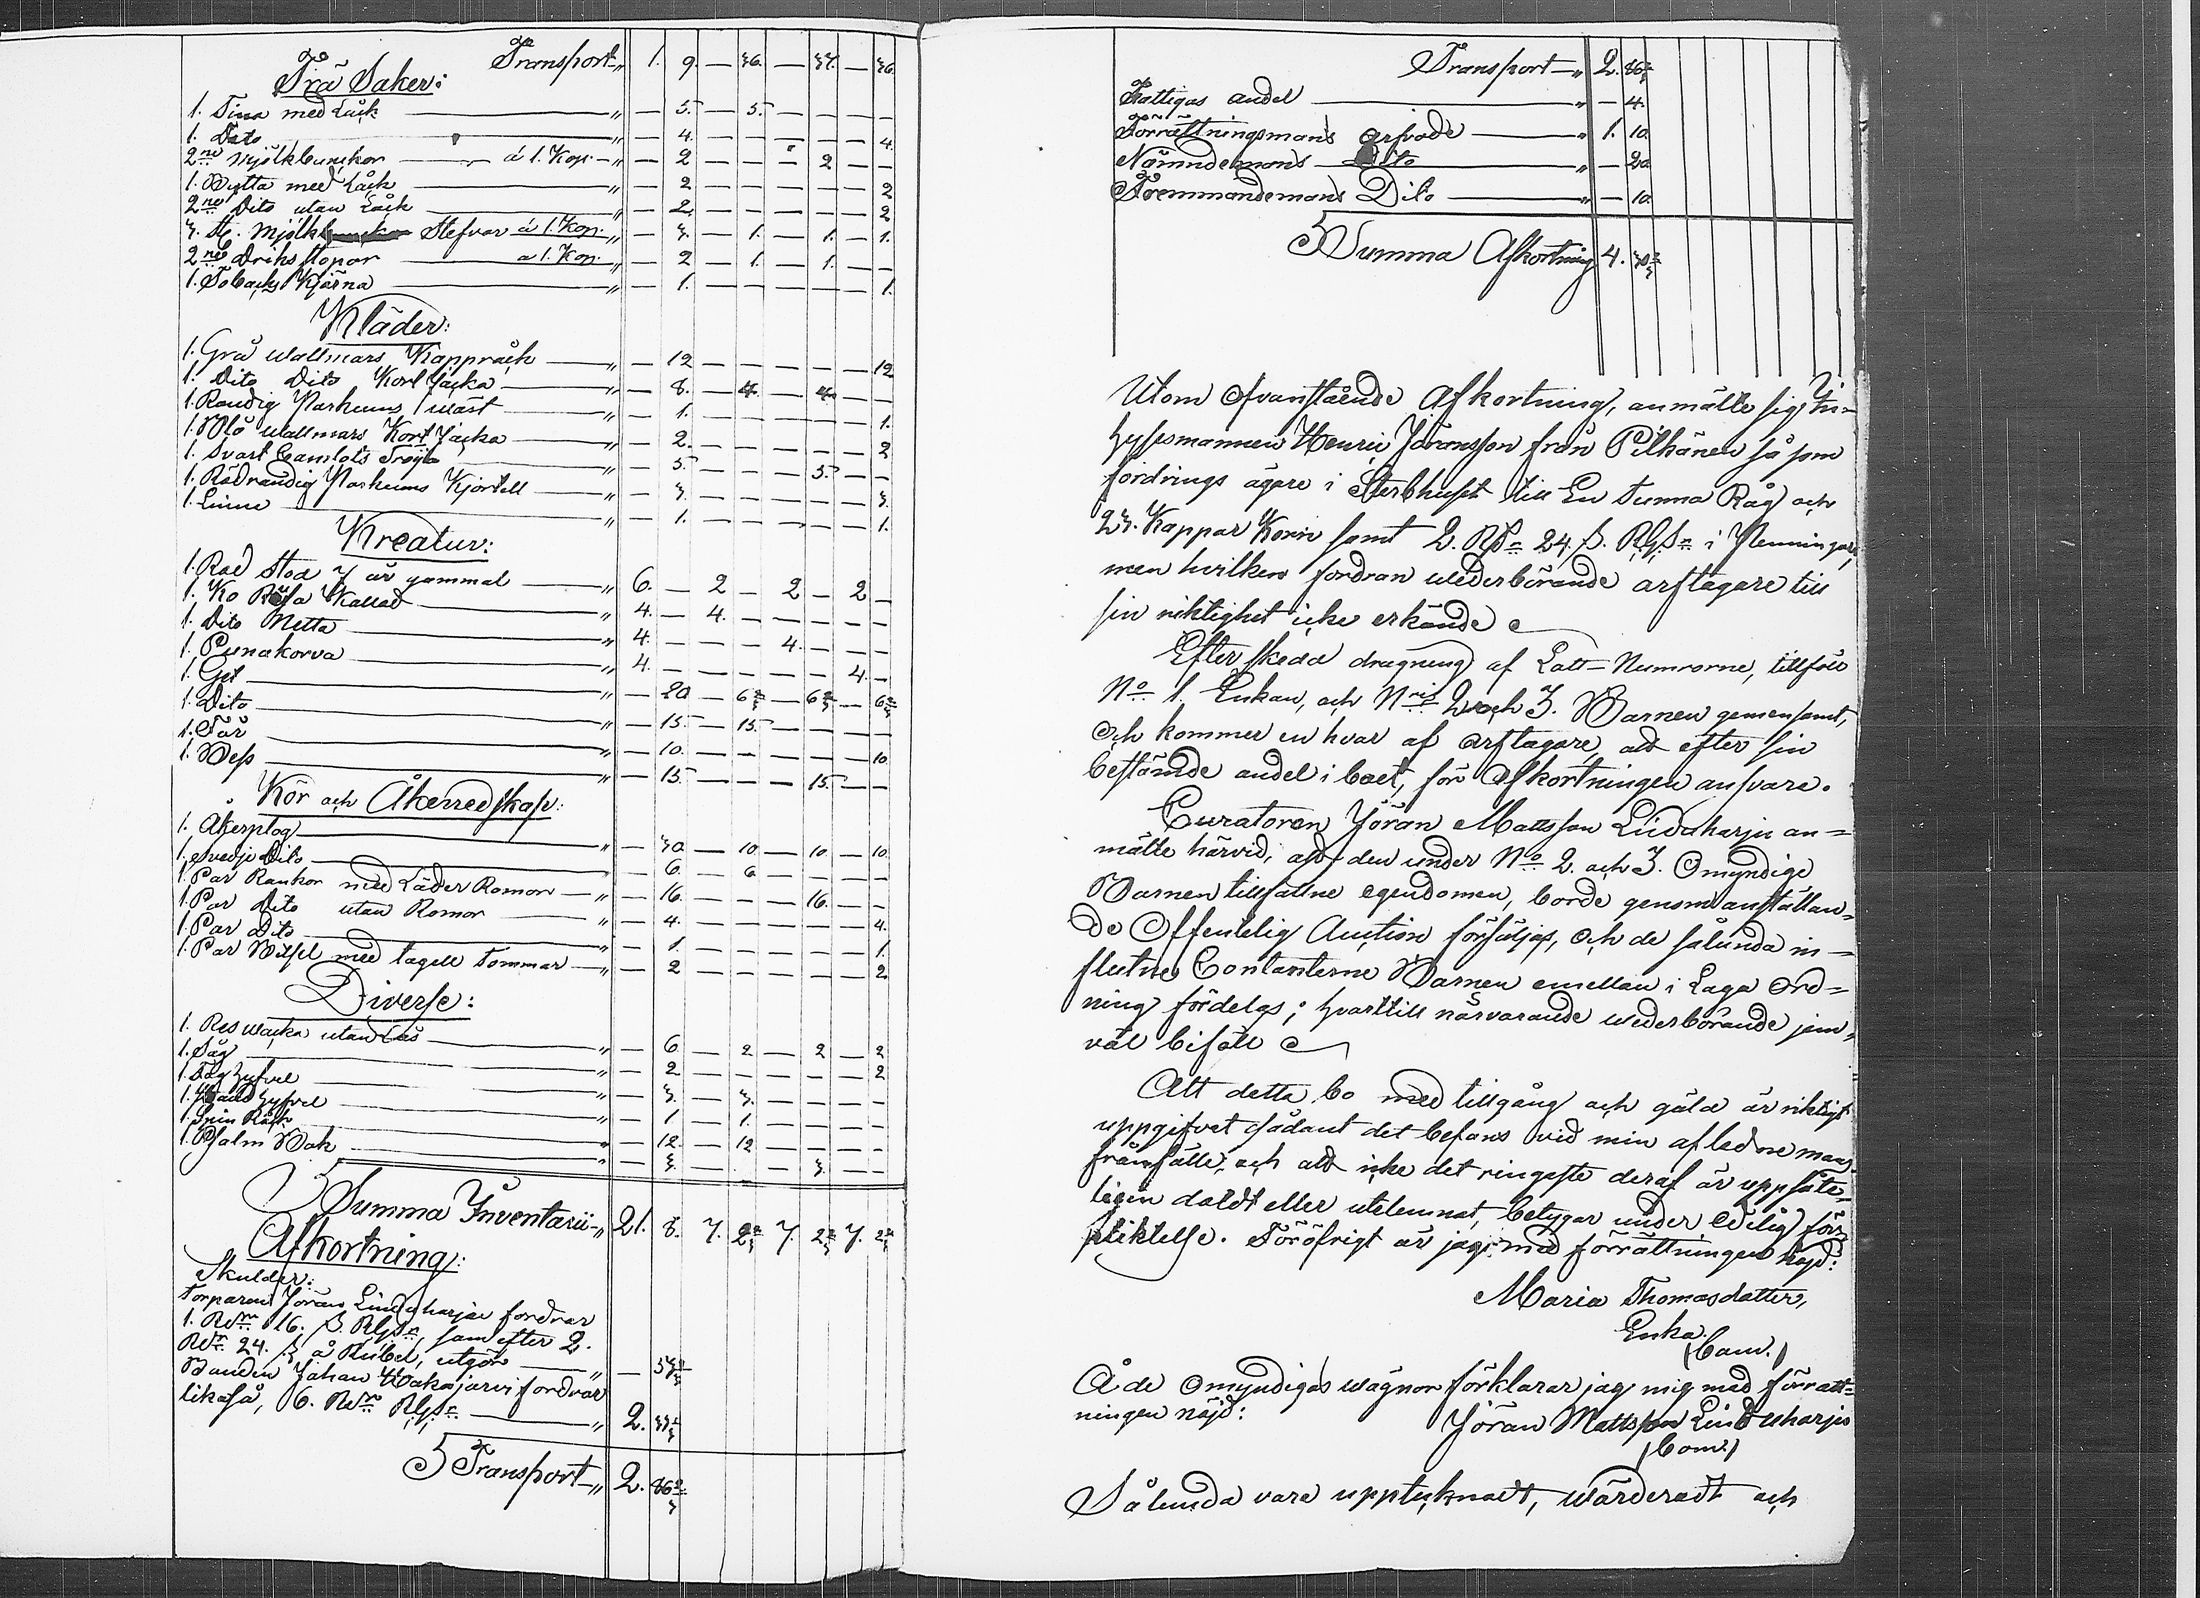 Transport " 1. 9. — 36. — 37. — 36.
Trä Saker:
1. Tina med Låck " — 5. — 5. — — — —
1. Dito " — 4. — — — — — 4.
2ne Mjölkbunckor á 1. Kop. " — 2 — — — 2 — —
1. Bytta med Låck " — 2 — — — — — 2
2ne Dito utan Låck " — 2. — — — — — 2
3. St. Mjölk Stefvor á 1. Kop. " — 3. — 1. — 1. — 1.
2ne Driks stopor a 1. Kop. " — 2 — 1. — 1. — —
1. Tobacks Kjärna " — 1. — — — — — 1.
Kläder:
1. Grå wallmars Kappråck " — 12 — — — — — 12
1. Dito Dito Kort Jacka " — 8. — 4. — 4. — —
1. Randig Parkums wäst " — 1. — — — — — 1.
1. Blå wallmars Kort Jacka " — 2. — — — — — 2
1. Svart Camlots Tröija " — 5. — — — 5. — —
1. Rödrandig Parkums Kjortell " — 3. — — — — — 3.
1. Linne " — 1. — — — — — 1.
Kreatur:
1. Röd Stod 7 år gammal " 6. — 2 — 2 — 2 —
1. Ko Rosa Kallad " 4. — 4. — — — — —
1. Dito Netta " 4. — — — 4. — — —
1. Punakorva " 4. — — — — — 4. —
1. Get " — 20 — 6 2/3 — 6 2/3 — 6 2/3
1. Dito " — 15. — 15. — — — —
1. Får " — 10. — — — — — 10.
1. Bess " — 15. — — — 15. — —
Kör och Åkerredskap:
1. Åkerplog " — 30 — 10. — 10. — 10.
1. Svedje Dito " — 6. — 6 — — — —
1. Par Rankor med Läder Remor " — 16. — — — 16. — —
1. Par Dito utan Remor " — 4. — — — — — 4.
1. Par Dito " — 1. — — — — — 1.
1. Par Bitsel med tagell tömmar " — 2 — — — — — 2
Diverse:
1. Res wacka utan Lås " — 6. — 2 — 2 — 2
1. Såg " — 2 — — — — — 2
1. Tog hyfvel " — 3. — 3. — — — —
1. hyfvel " — 1 — 1. — — — —
1. Spin Råck " — 12 — 12 — — — —
1. Psalm Bok " — 3. — — — 3. — —
Summa Inventarii " 21. 8. 7. 2 2/3 7. 2 2/3 7. 2 2/3
Afkortning:
Skulder:
Torparen Jöran Linduharju fordrar
1. Rdr 16. s. Rgs, som efter 2.
Rdr 24. s á Rubel, utgör "
Bonden Johan fordrar
likaså, 6. Rdr Rgs " 2.
Transport " 2. 86 2/3
Transport " 2. 86 2/3
Fattigas andel " — 4.
Förrättningsmans arfvode " 1. 10.
Nämndemans Dito " — 20.
Fremmandemans Dito " — 10.
Summa Afkortning 4. 30 2/3
Utom ofvanstående Afkortning, anmälte sig In-
hysesmannen Henric Jöransson från Pilkänen så som
fordrings ägare i Sterbhuset till En Tunna Råg och
23. Kappar Korn samt 2. Rdr 24. s. Rgs i Penningar,
men hvilken fordran wederbörande arftagare till
sin riktighet icke erkände
Efter skedd dragning af Lott-Numrorne, tillföll
No 1. Enkan, och Nris 2 och 3. Barnen gemensamt,
och kommer en hvar af arftagare, att efter sin
bestämde andel i boet, för Afkortningen ansvara.
Curatoren Jöran Mattsson Linduharju an-
mälte härvid, att den under No 2. och 3. Omyndige
Barnen tillfallne egendomen, borde genom anställan-
de Offentelig Auction försäljas, och de sålunda in-
flutne Contanterne Barnen emellan i Laga Ord-
ning fördelas; hvartill närvarande wederbörande jem-
väl biföll
Att detta bo med tillgång och gäld är riktigt
uppgifvet sådant det befans vid min aflednne mans
frånfälle, och att icke det ringeste deraf är uppsåte-
ligen doldt eller utelemnat, betygar under Edelig för-
pliktelse. Föröfrigt är jag med förrättningen nöjd:
Maria Thomasdotter,
Enka.
(bom.)
Å de omyndigas wägnar förklarar jag mig med förrätt-
ningen nöjd: Jöran Mattsson Linduharju
(bom.)
Sålunda vara upptecknadt, wärderadt och